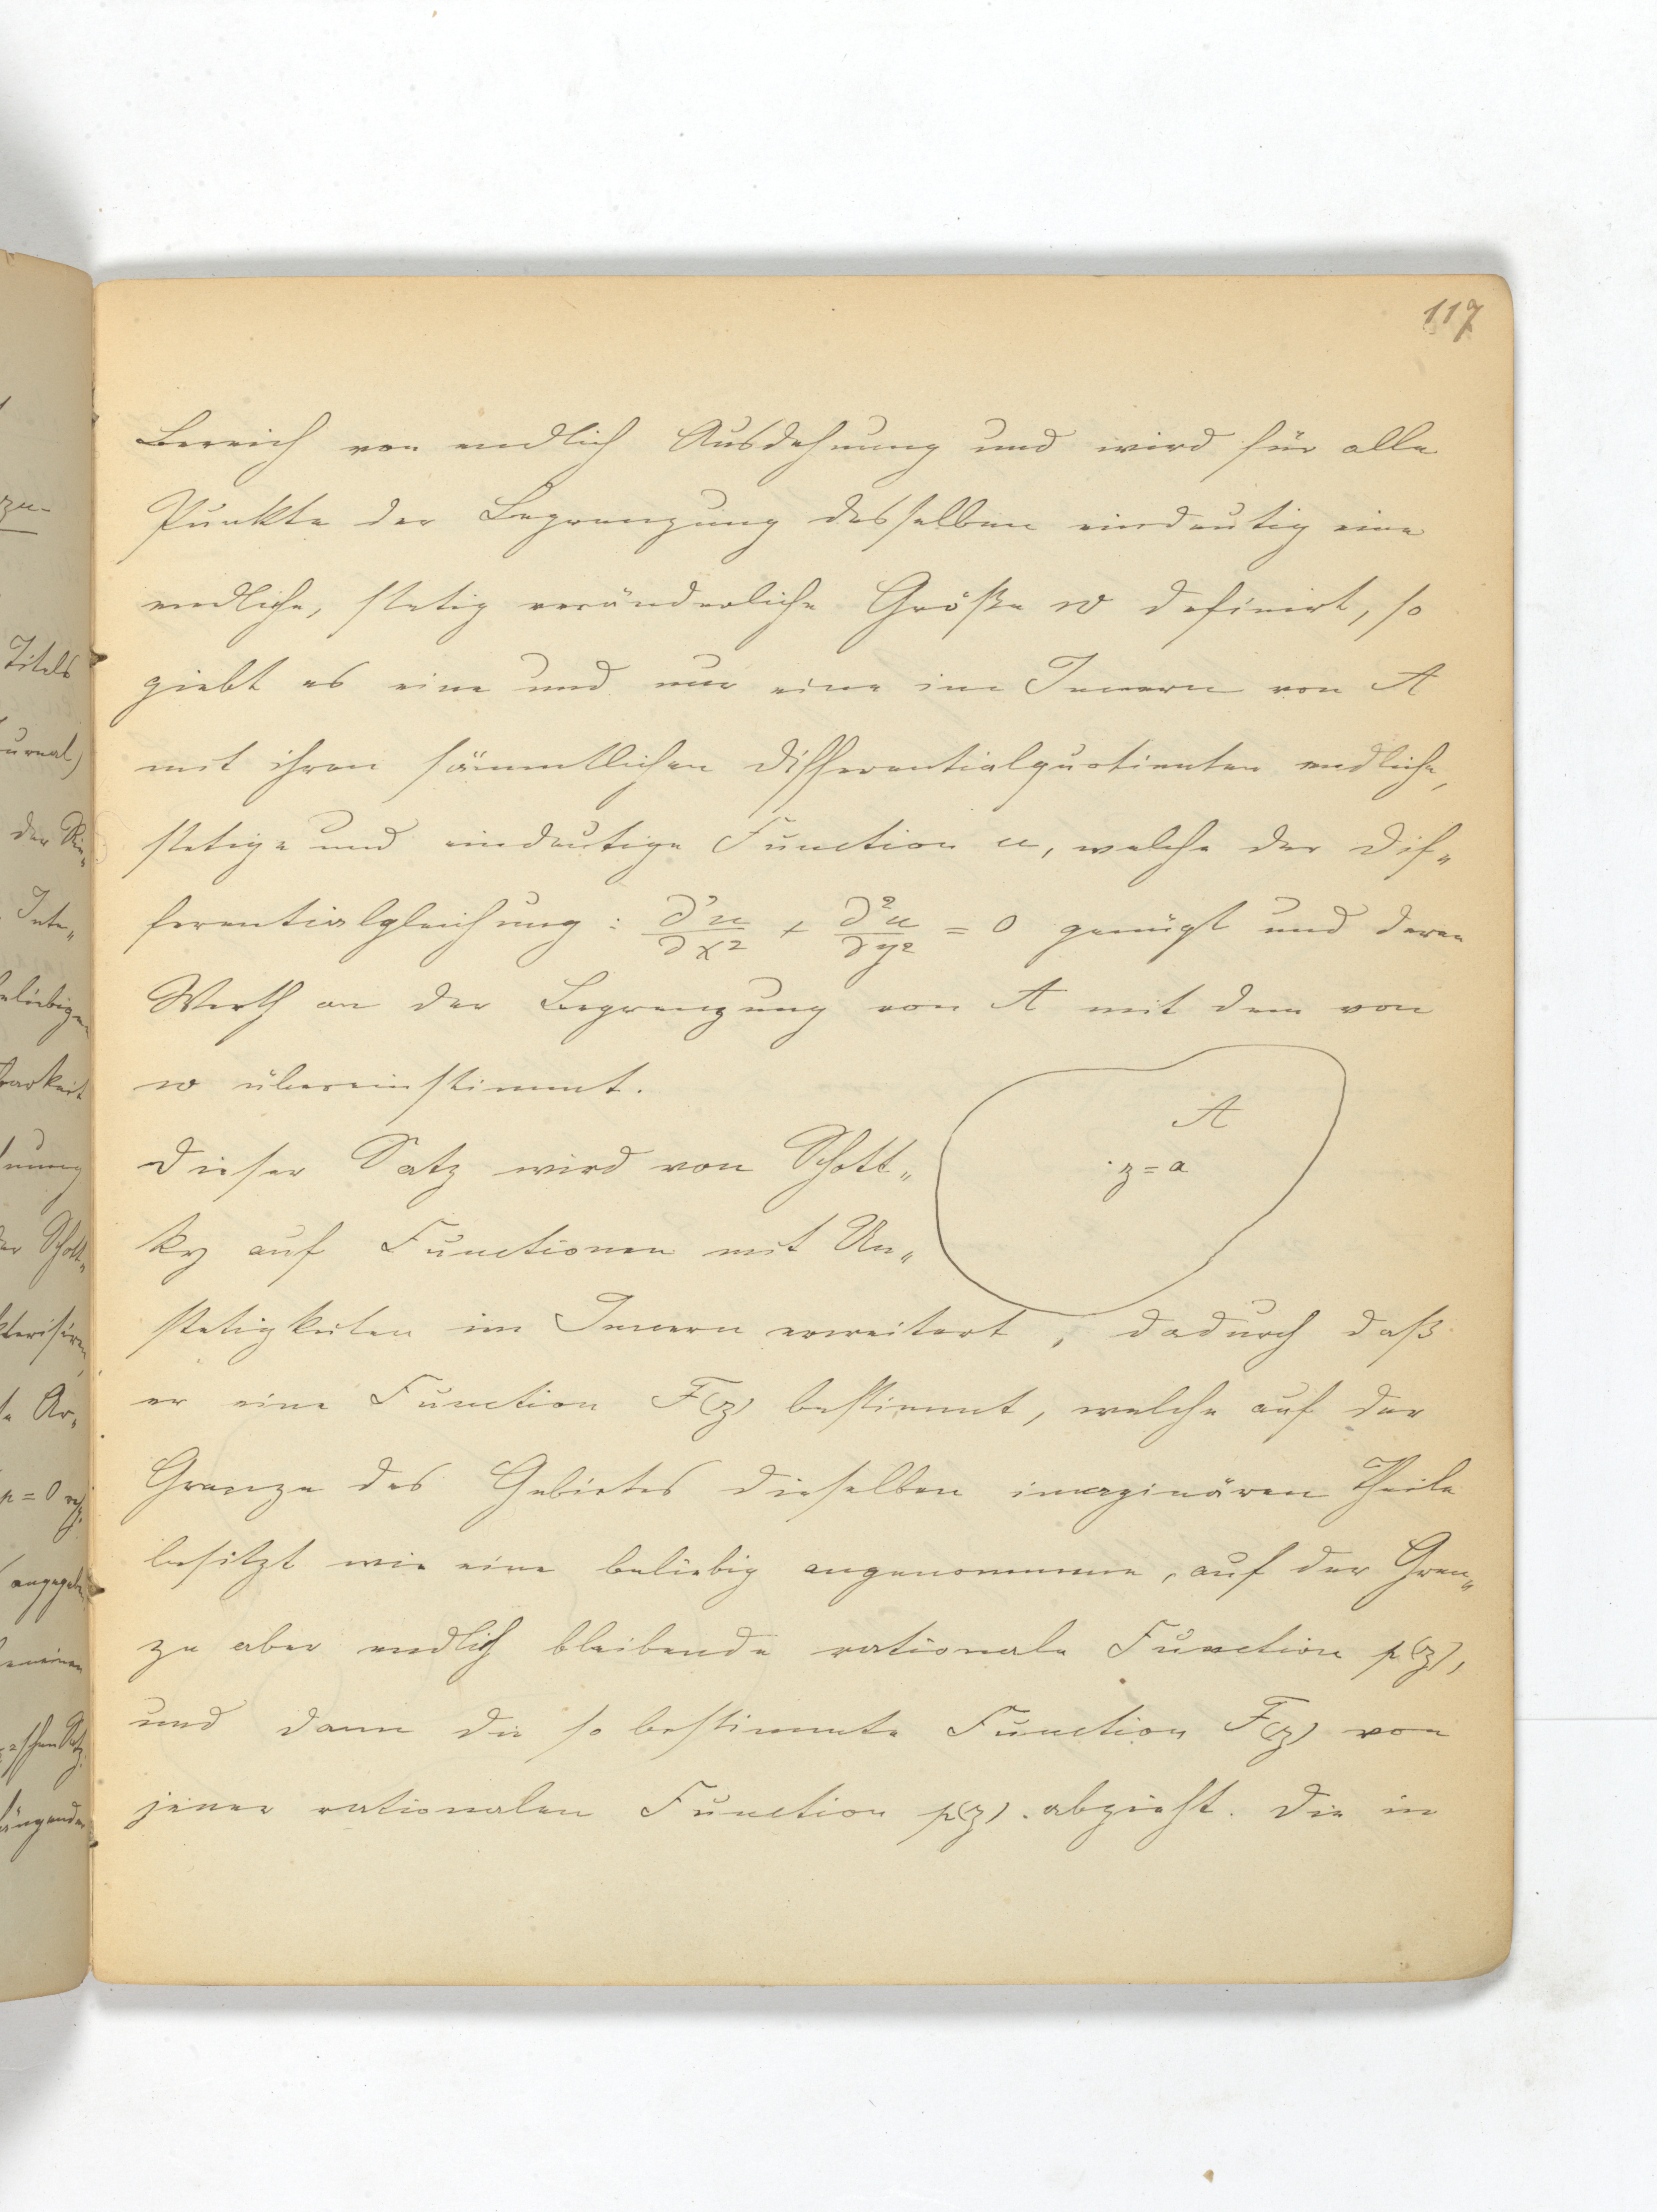 117
Bereich von endlich Ausdehnung und wird für alle
Punkte der Begrenzung desselben eindeutig eine
endliche, stetig veränderliche Größe w definirt, so
giebt es eine und nur eine im Innern von A
mit ihren sämmtlichen Differentialquotienten endliche,
stetige und eindeutige Function u, welche der Dif„
ferentialgleichung: ∂²u/∂x² + ∂²u/∂y² = 0 genügt und deren
Werth an der Begrenzung von A mit dem von
w übereinstimmt.
A
z = a
Dieser Satz wird von Schott„
ky auf Functionen mit Un„
stetigkeiten im Innern erweitert, dadurch daß
er eine Function F(z) bestimmt, welche auf der
Grenze des Gebietes dieselben imaginären Theile
besitzt wie eine beliebig angenommene, auf der Gren„
ze aber endlich bleibende rationale Function p(z),
und dann die so bestimmte Function F(z) von
jener rationalen Function p(z) abzieht. Die in
zu-
Titels
urnal)
der
Inte„
eliebigen
barkeit
nung
der Schott„
kterisiren,
te Ar„
p = 0
angegeben
längenden